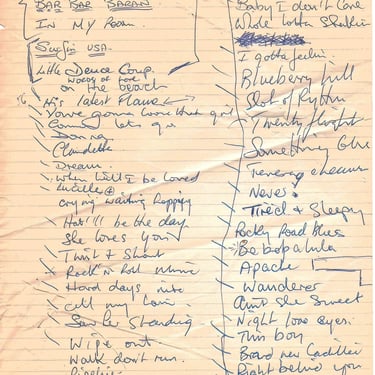 BAR BAR BARAN
IN MY Room.
Surfin USA.
Little Deuce Coup.
Words of love
on the beach
His latest Flame
You're gonna loose that girl
Come lets go
Donna
Claudette
Dream.
when will I be loved
Lucille
crying waiting hopping
that'll be the day
She loves you
Twist & Shout
Rock n Roll music
Hard days nite
call my name
Standing
Wipe out
Walk don't run.
Pipeline
Baby I don't Care
Whole lotta Shakin
I gotta feelin.
Blueberry hill
Slot of Rythm
Twenty flight
Something Else
Never
Tired & Sleepy
Rocky Road blues
Be bop a lula
Apache
Wanderer
Aint she Sweet
Night love eyes.
This boy
Brand new Cadillac
Right behind you